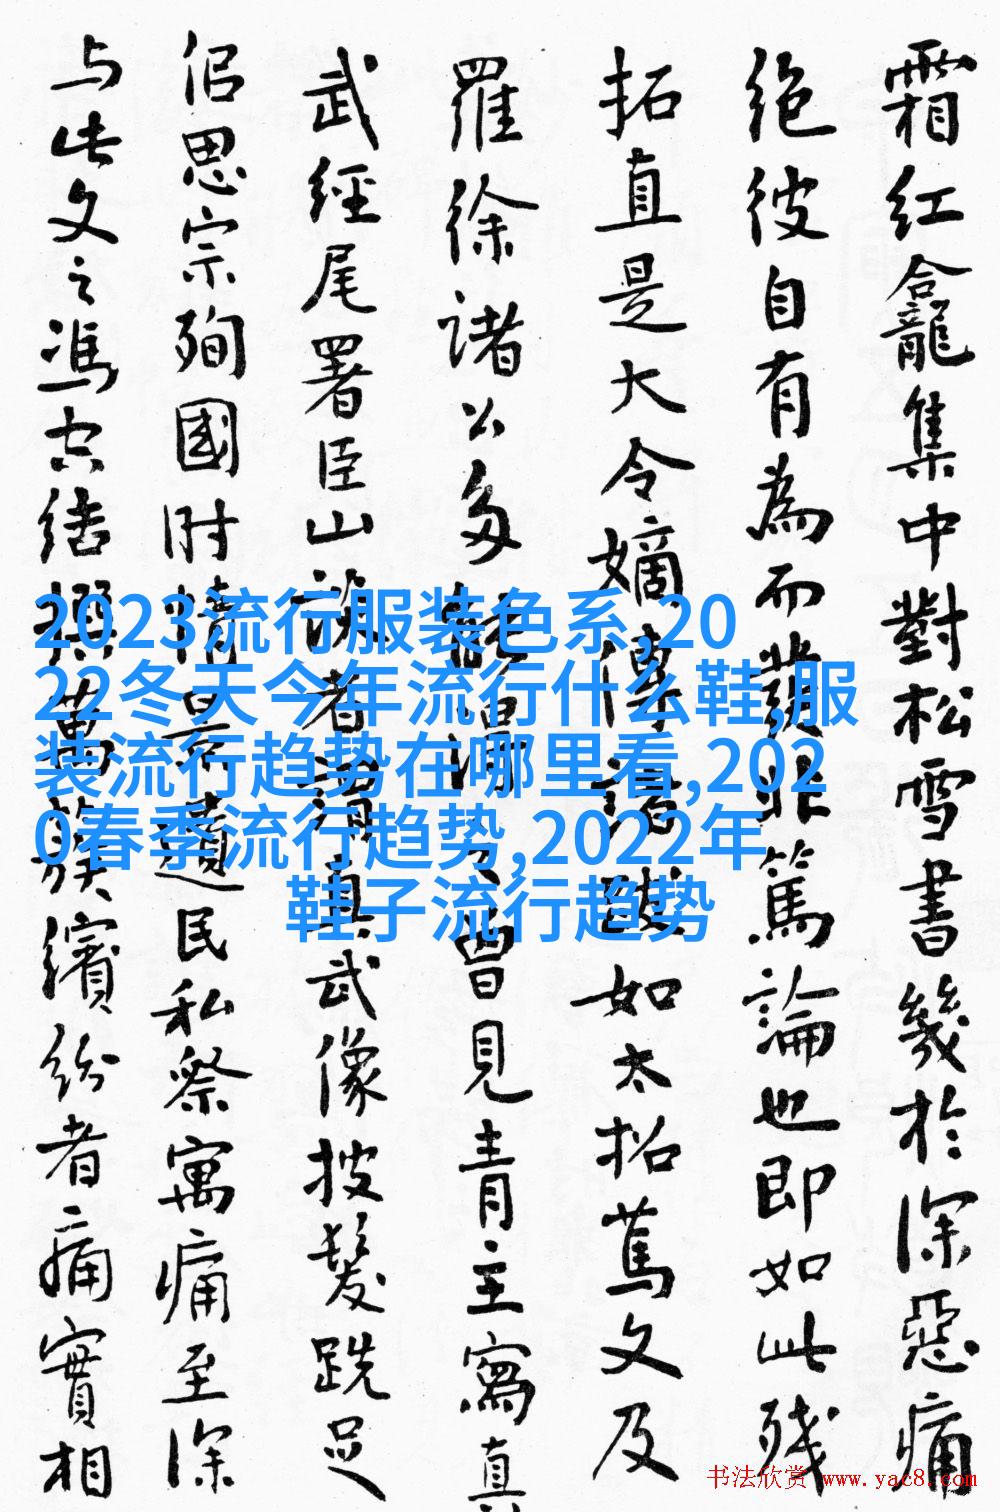 霜红龛集中對松雪書幾於深惡痛
绝彼自有為而發非篤論也即如此残
拓直是大令嫡傳
如太
文及
羅徐諸公多
曾見青主寫真
武經尾署臣山
真武像披髮跣足
侣思宗殉國时情
遺民私察寓痛至深
与此文之馮
繽纷者痛實相
2023流行服装色系,20
22冬天今年流行什么鞋,服
装流行趋势在哪里看,202
0春季流行趋势,2022年
鞋子流行趋势
书法欣赏 www.yac8.com